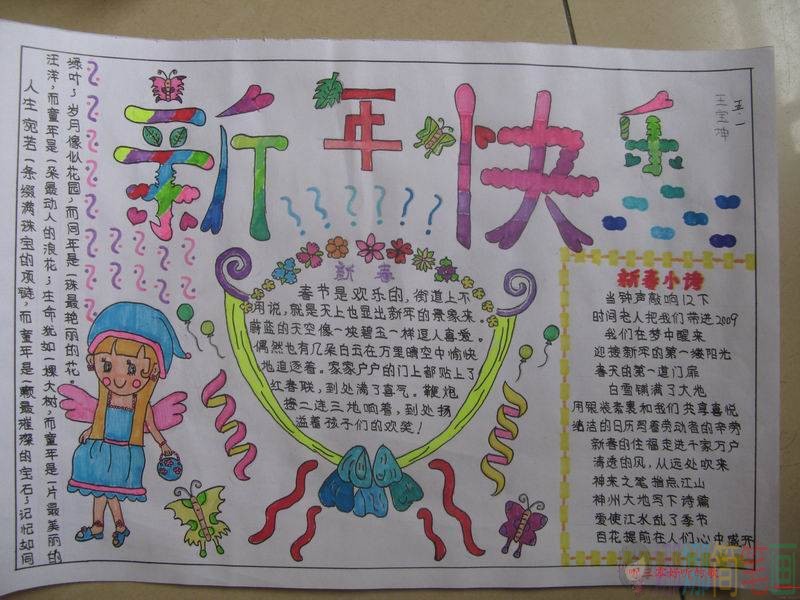 新年快乐
五.一
王宝坤
人生宛若一条缀满珠宝的项链,而童年是一颗最璀璨的宝石;记忆如同
汪洋,而童年是一朵最动人的浪花;生命犹如一棵大树,而童年是一片最美丽的
绿叶;岁月像似花园,而同年是一珠最艳丽的花。
新春
春节是欢乐的,街道上不
用说,就是天上也显出新年的景象来.
蔚蓝的天空像一块碧玉一样逗人喜爱。
偶然也有几朵白玉在万里晴空中愉快
地追逐着。家家户户的门上都贴上了
红春联,到处满了喜气。鞭炮
接二连三地响着,到处扬
溢着孩子们的欢笑!
新春小诗
当钟声敲响12下
时间老人把我们带进2009
我们在梦中醒来
迎接新年的第一缕阳光
春天的第一道门扉
白雪铺满了大地
用银装素裹和我们共享喜悦
皓洁的日历写着劳动者的辛劳
新春的住福走进千家万户
清造的风,从远处吹来
神来之笔指点江山
神州大地写下诗篇
爱使江水乱了季节
百花提前在人们心中盛开